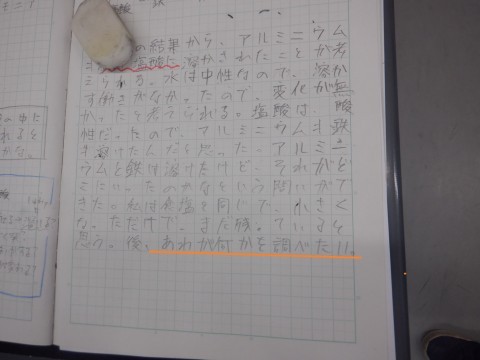 の結果から、アルミニウム
塩酸に溶かされたことが考
えられる。水は中性なので、溶か
す働きがなかったので、変化が無
かったと考えられる。塩酸は、酸
性だったので、アルミニウムも鉄
も溶けたんだと思った。アルミニ
ウムと鉄は溶けたけど、それがど
こにいったのかなという問いがで
きた。私は食塩と同じで、小さく
なっただけで、まだ残っていると
思う。後、あれが何かを調べたい。